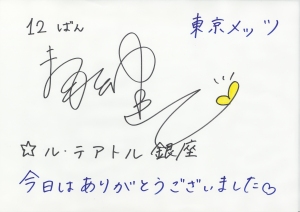 12 ばん 東京メッツ
☆ ル・テアトル 銀座
今日はありがとうございました♡